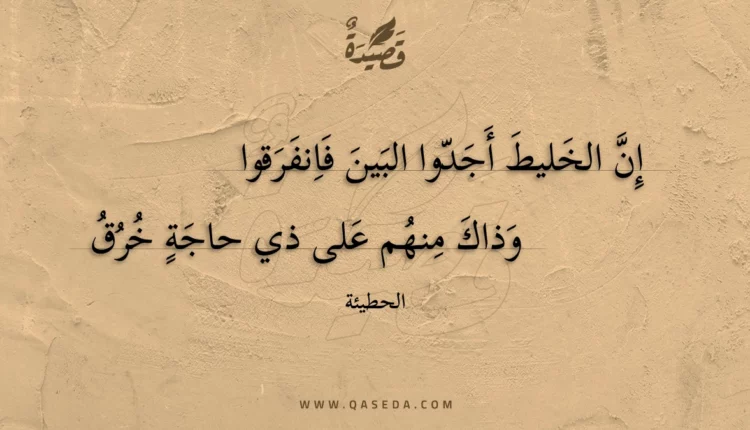 قَصِيدَةٌ
إِنَّ الخَليطَ أَجَدّوا البَينَ فَاِنفَرَقوا
وَذاكَ مِنهُم عَلى ذي حاجَةٍ خُرُقُ
الحطيئة
WWW.QASEDA.COM